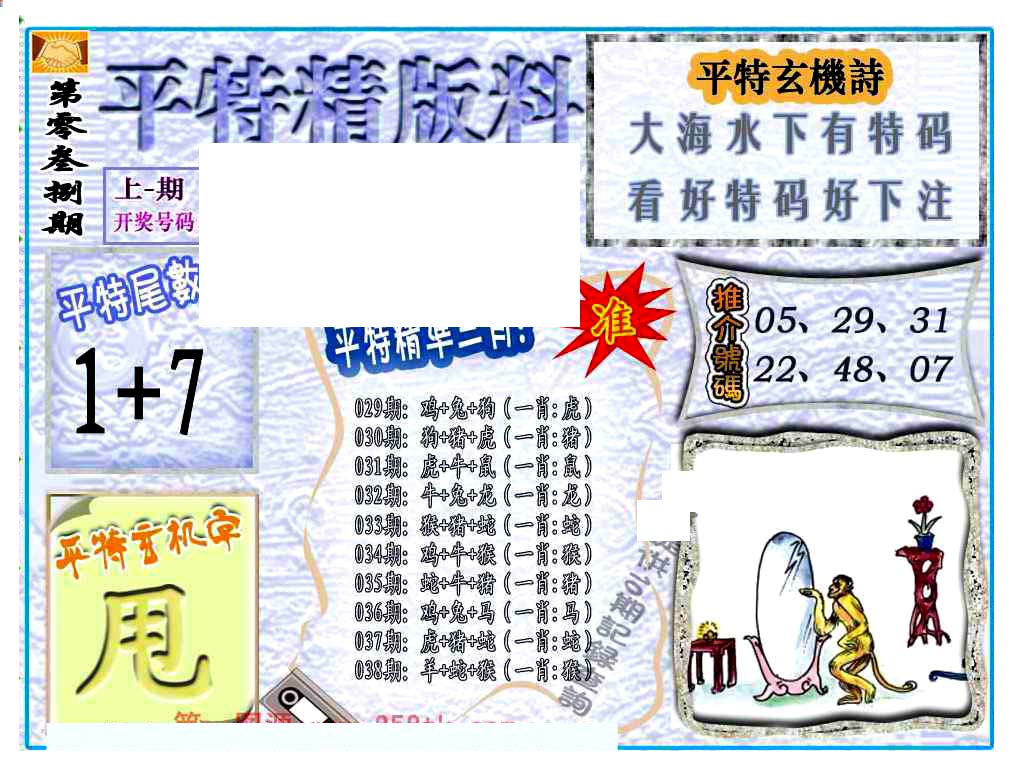 第零叁捌期
平特精版料
上-期
开奖号码
平特玄機詩
大海水下有特码
看好特码好下注
平特尾數
1+7
平特精準一肖:
准
推介號碼
05、29、31
22、48、07
029期: 鸡+兔+狗(一肖:虎)
030期: 狗+猪+虎(一肖:猪)
031期: 虎+牛+鼠(一肖:鼠)
032期: 牛+兔+龙(一肖:龙)
033期: 猴+猪+蛇(一肖:蛇)
034期: 鸡+牛+猴(一肖:猴)
035期: 蛇+牛+猪(一肖:猪)
036期: 鸡+兔+马(一肖:马)
037期: 虎+猪+蛇(一肖:蛇)
038期: 羊+蛇+猴(一肖:猴)
平特玄机字
甩
期記錄
詢